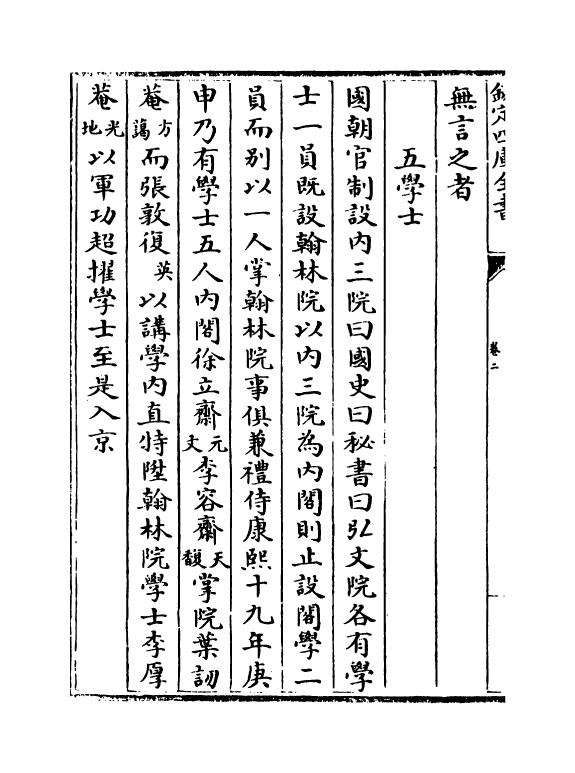 欽定四庫全書
卷二
無言之者
五學士
國朝官制設内三院曰國史曰秘書曰弘文院各有學
士一員既設翰林院以内三院為内閣則止設閣學二
員而别以一人掌翰林院事俱兼禮侍康熙十九年庚
申乃有學士五人内閣徐立齋元文李容齋天馥掌院葉訒
菴方藹而張敦復英以講學内直特陞翰林院學士李厚
菴光地以軍功超擢學士至是入京